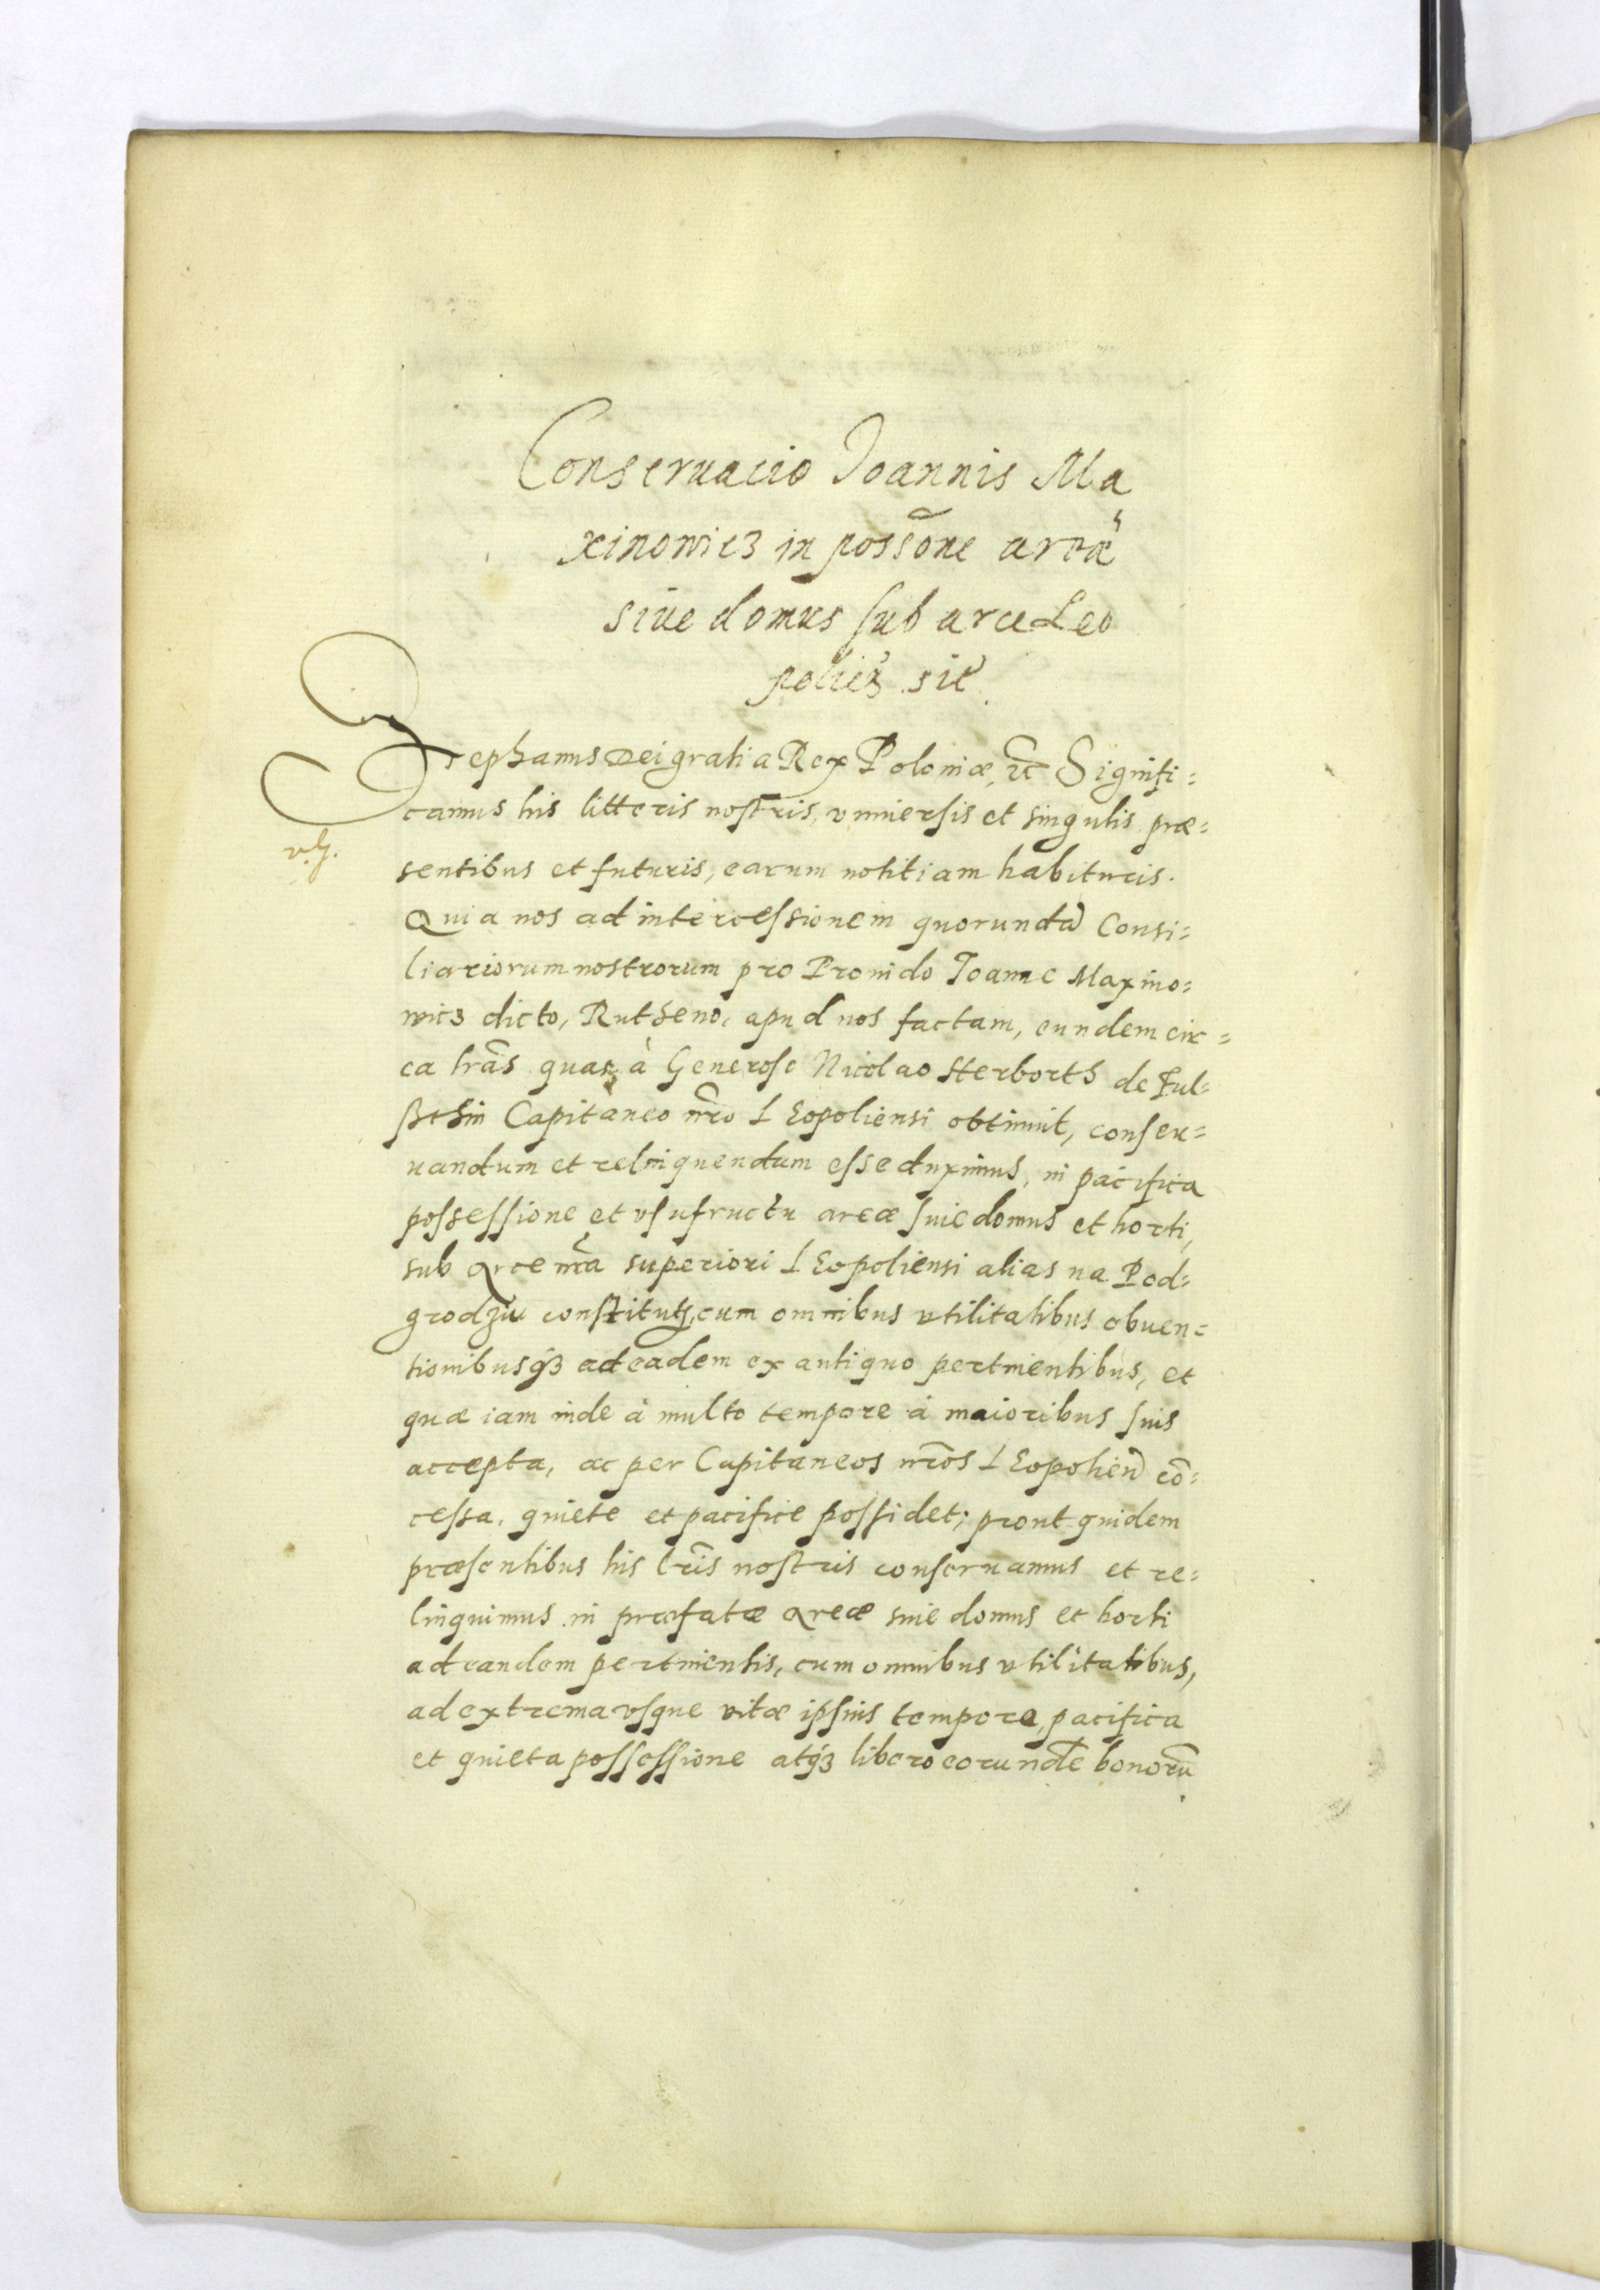 Conseruacio Joannis Ma
ximowicz in possõne areæ
siue domus sub arce Leo
polieñ sit
Stephanus Dei gratia Rex Poloniæ, etc̃ Signifi=
camus his litteris nostris, vniuersis et singulis præ=
v.g.
sentibus et futuris, earum notitiam habituris.
Quia nos ad intercessionem quorundã Consi=
liariorum nostrorum pro Prouido Joanne Maximo=
wicz dicto, Rutheno, apud nos factam, eundem cir=
ca lrãs quas à Generoso Nicolao Herborth de Ful=
sthin Capitaneo nrõ Leopoliensi obtinuit, conser=
uandum et relinquendum esse duximus, in pacifica
possessione et vsufructu areæ siue domus et horti,
sub Arce nrã superiori Leopoliensi alias na Pod=
grodziu constitutis, cum omnibus vtilitatibus obuen=
tionibusq3 ad eadem ex antiquo pertinentibus, et
quæ iam inde à multo tempore à maioribus suis
accepta, ac per Capitaneos nrõs Leopolieñ cõ=
cessa, quiete et pacifice possidet; prout quidem
præsentibus his lrĩs nostris conseruamus et re=
linquimus in præfatæ Areæ siue domus et horti
ad eandem pertinentis, cum omnibus vtilitatibus,
ad extrema vsque vitæ ipsius tempora, pacifica
et quieta possessione atq3 libero eorundẽ bonorũ